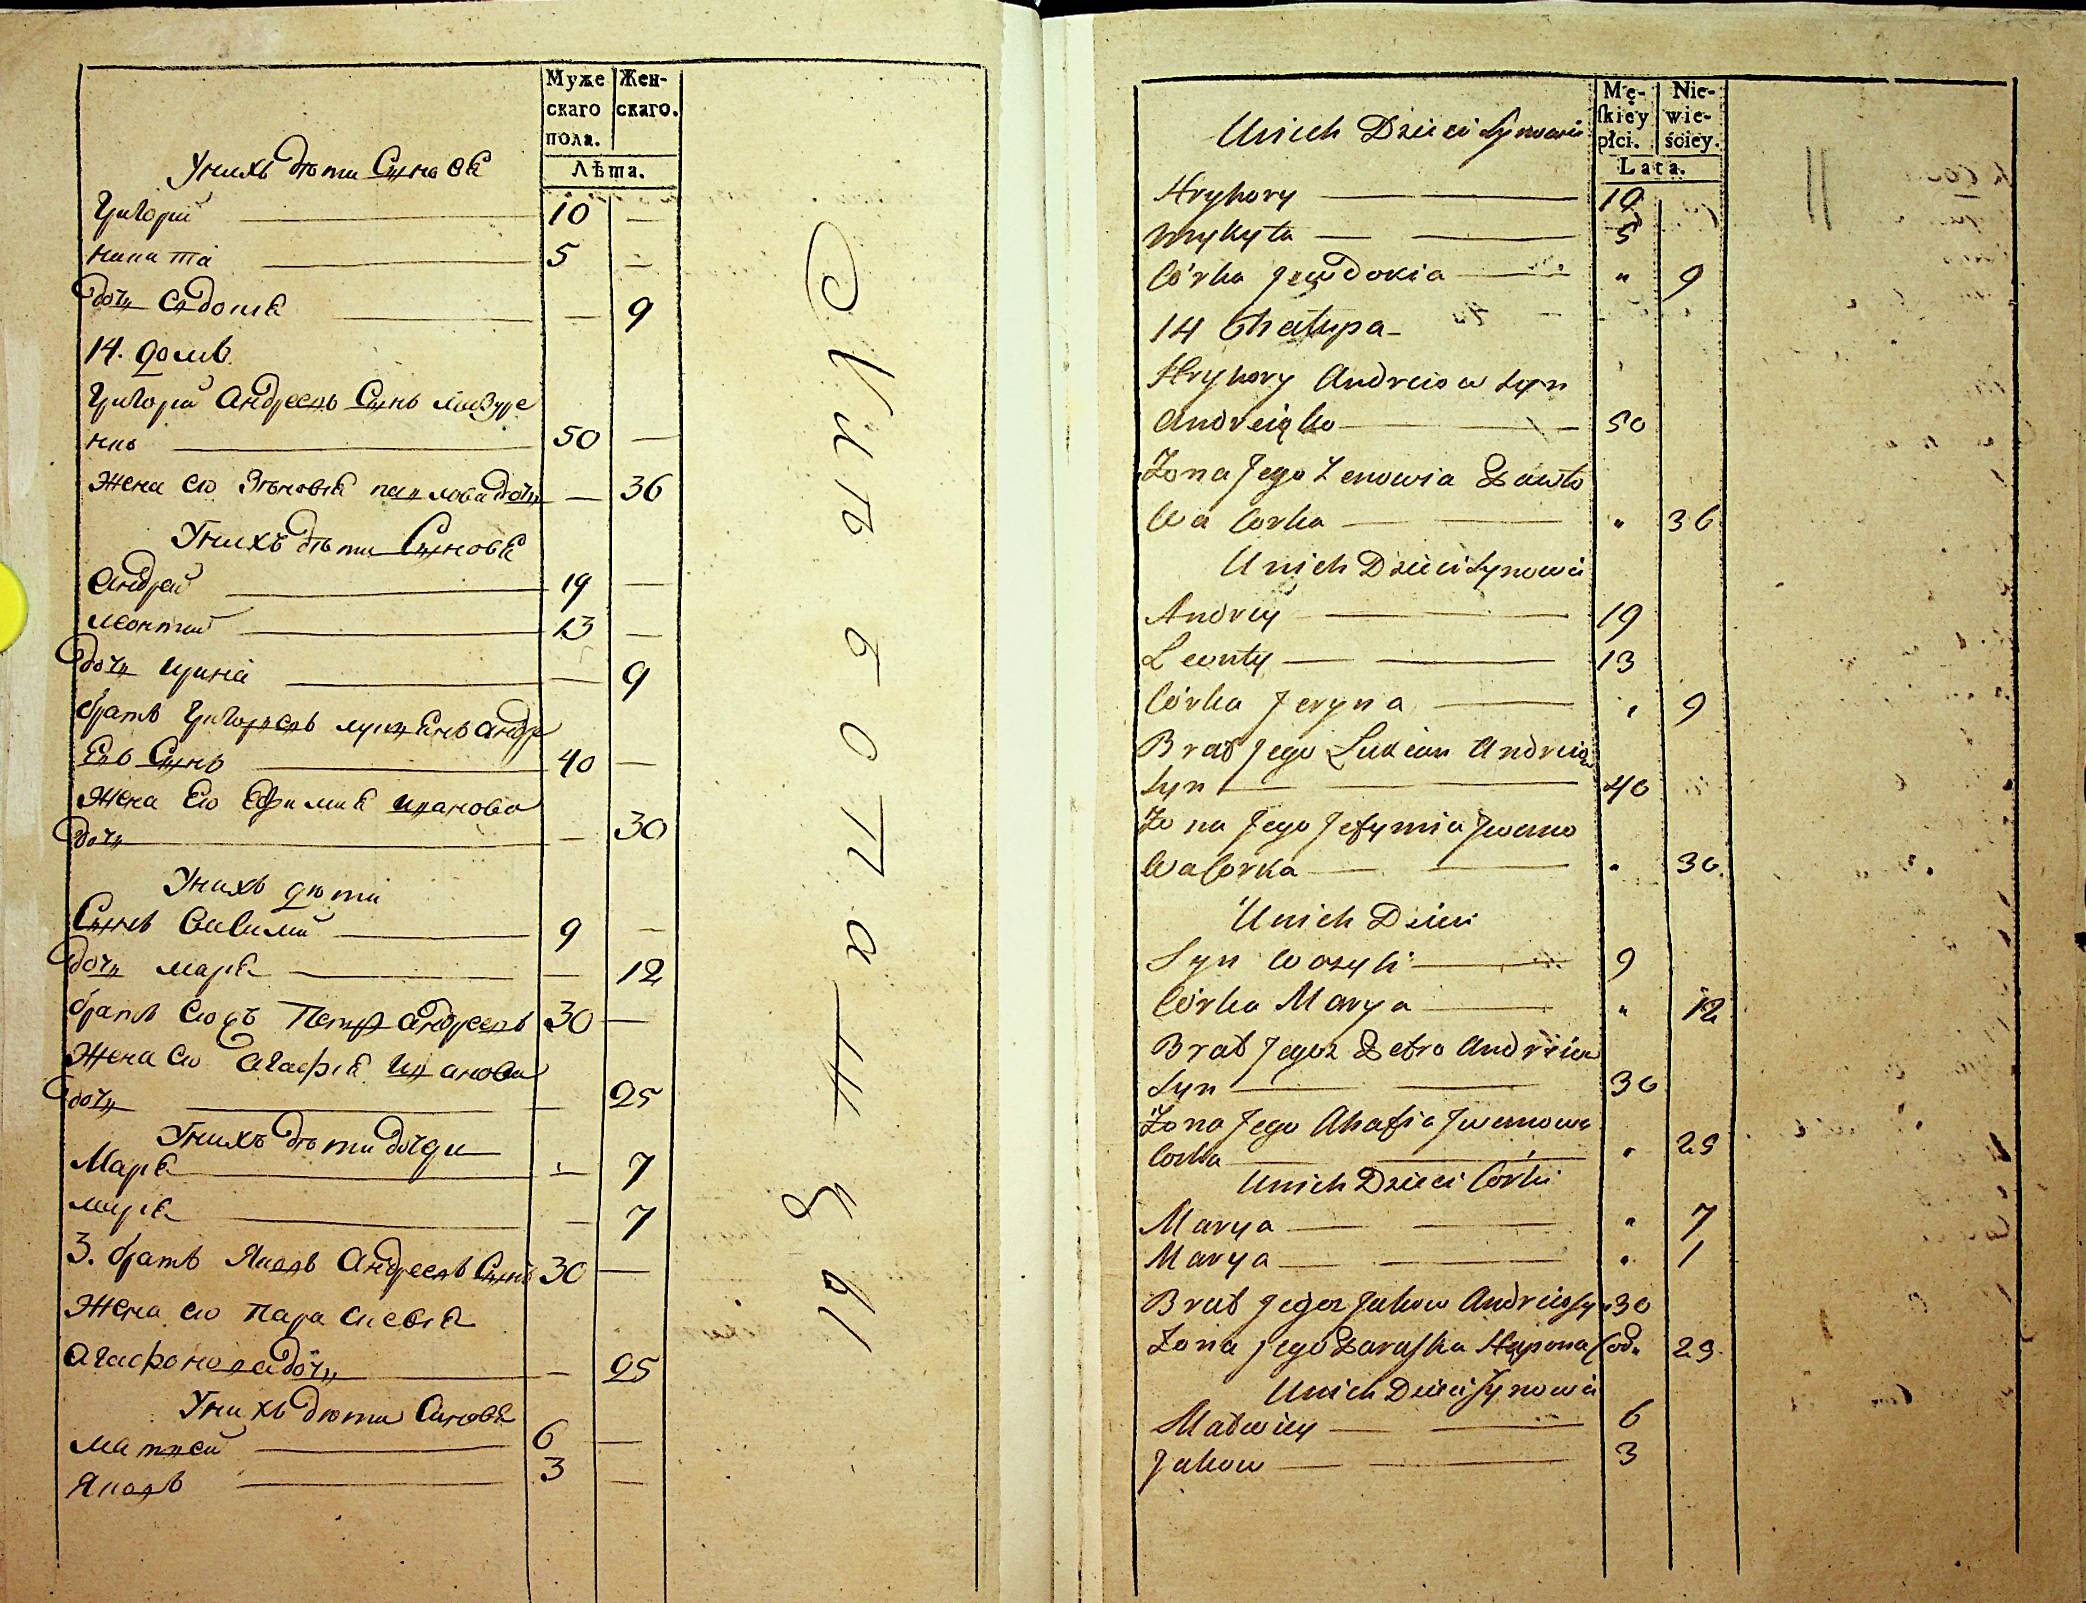 Муже
скаго
пола.
Жен-
скаго.
Лѣта.
Унихъ дѣти Синовѣ
Григорій 10 —
Никита 5 —
дочь — 9
14. домъ
Григорій Андреевъ Сынъ Мазуре
нко 50 —
Жена его Зѣновія павлова дочь — 36
Унихъ дѣти Сыновѣ
Андрей 19 —
Леонтий 13 —
дочь Ирина — 9
братъ Григориевъ Андре
евъ Сынъ 40 —
Жена его Ефимия Иванова
дочь — 30
Унихъ дѣти
Сынъ Василий 9 —
дочь Мария — 12
братъ его Петръ Андреевъ 30 —
Жена его Агафия Иванова
дочь — 25
Унихъ дѣти дочери
Мария — 7
Мария — 7
3. братъ Яковъ Андреевъ Сынъ 30 —
Жена его Параскевия
Агафонова дочь — 25
Унихъ дѣти Синовѣ
Матвей 6 —
Яковъ 3 —
Mę-
ſkiey
płci.
Nie-
wie-
ściey.
Lata.
Unich Dzieci Synowie
Hryhory 10
Mykyta 5
Córka Jewdokia " 9
14 Chałupa
Hryhory Andreiow Syn
Andreiąko 50
Żona Jego Zenowia Pawło
wa Corka " 36
Unich Dzieci Synowie
Andrey 19
Leonty 13
Córka Jeryna " 9
Brat Jego Lukian Andreiow
Syn 40
Żona Jego Jefymia Jwano
wa Corka " 30
Unich Dzieci
Syn Wasyli 9
Córka Marya " 12
Brat Jegoz Petro Andreiow
Syn 30
Żona Jego Ahafia Jwanowa
Corka " 25
Unich Dzieci Corki
Marya " 7
Marya " 1
Brat Jegoz Jakow Andreiow Sy 30
Żona Jego Paraska Hapona Cor. 25
Unich Dzieci Synowie
Matwiey 6
Jakow 3